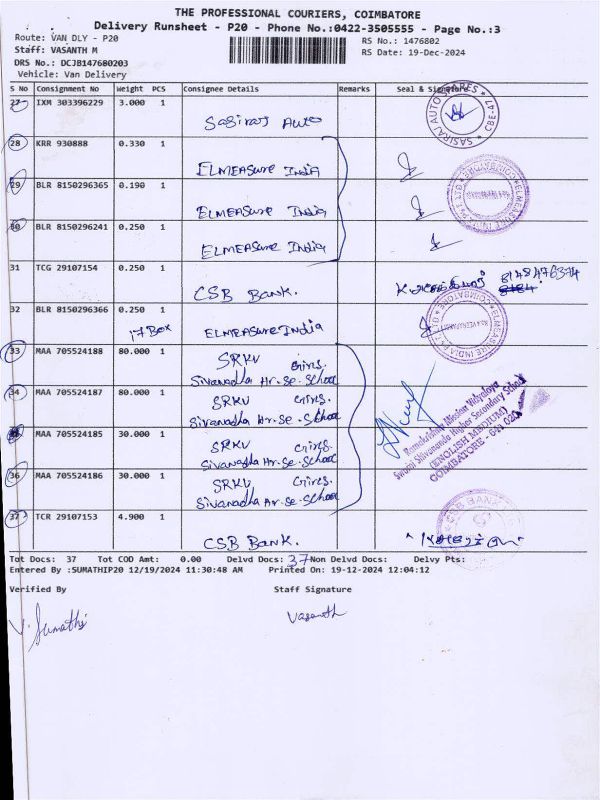 THE PROFESSIONAL COURIERS, COIMBATORE
Delivery Runsheet - P20 - Phone No.:0422-3505555 - Page No.:3
Route: VAN DLY - P20
RS No.: 1476802
Staff: VASANTH M
RS Date: 19-Dec-2024
DRS No.: DCJB147680203
Vehicle: Van Delivery
S No Consignment No Weight PCS Consignee Details Remarks Seal & Signature
27 IXM 303396229 3.000 1
Sasiraj Auto
SASIRAJ AUTO CBE-47
28 KRR 930888 0.330 1
ELMEASure INdiA
29 BLR 8150296365 0.190 1
ELMEASure India
30 BLR 8150296241 0.250 1
ELMEASure India
31 TCG 29107154 0.250 1
8148476374
CSB Bank.
32 BLR 8150296366 0.250 1
17 Box ELMEASure India
ELMEASURE INDIA COIMBATORE
33 MAA 705524188 80.000 1
SRKV
Sivanadha Hr.Se.School
34 MAA 705524187 80.000 1
SRKV
Sivanadha Hr.Se.School
Ramakrishna Mission Vidyalaya
Swami Shivananda Higher Secondary School
(ENGLISH MEDIUM)
COIMBATORE - 641 020
MAA 705524185 30.000 1
SRKV
Sivanadha Hr.Se.School
36 MAA 705524186 30.000 1
SRKV
Sivanadha Hr.Se.School
37 TCR 29107153 4.900 1
CSB Bank.
CSB BANK
Tot Docs: 37 Tot COD Amt: 0.00 Delvd Docs: 37 Non Delvd Docs: Delvy Pts:
Entered By :SUMATHIP20 12/19/2024 11:30:48 AM Printed On: 19-12-2024 12:04:12
Verified By Staff Signature
V. Sumathi Vasanth